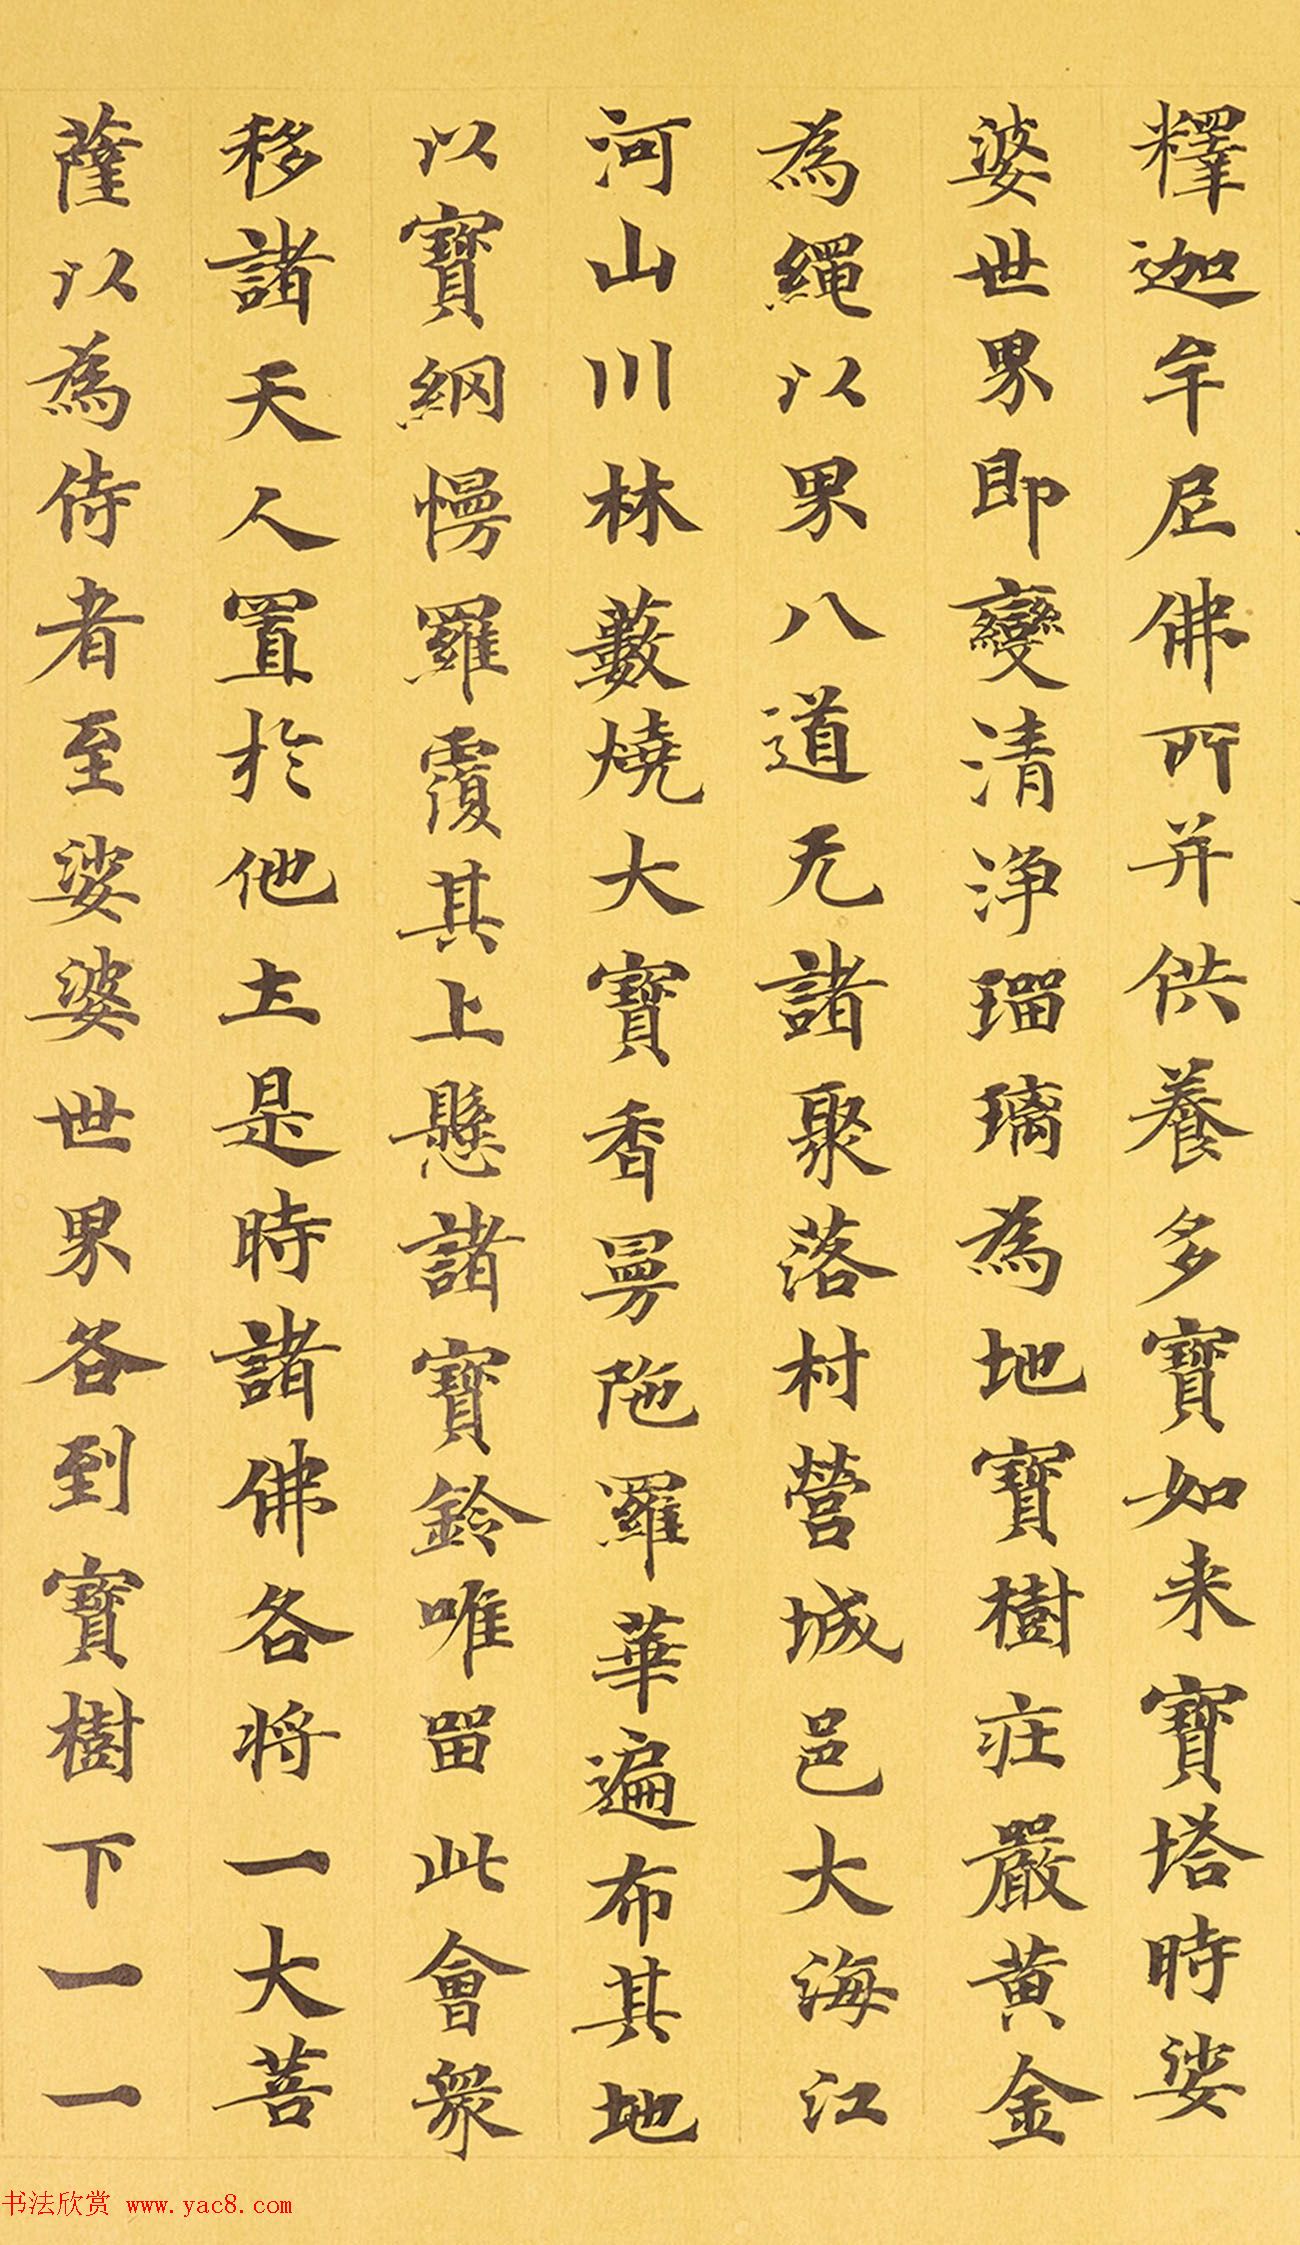 釋迦牟尼佛所并供養多寶如来寶塔時娑
婆世界即變清淨瑠璃為地寶樹莊嚴黄金
為繩以界八道无諸聚落村營城邑大海江
河山川林藪燒大寶香曼陁羅華遍布其地
以寶網幔羅覆其上懸諸寶鈴唯留此會衆
移諸天人置於他土是時諸佛各将一大菩
薩以為侍者至娑婆世界各到寶樹下一一
书法欣赏 www.yac8.com